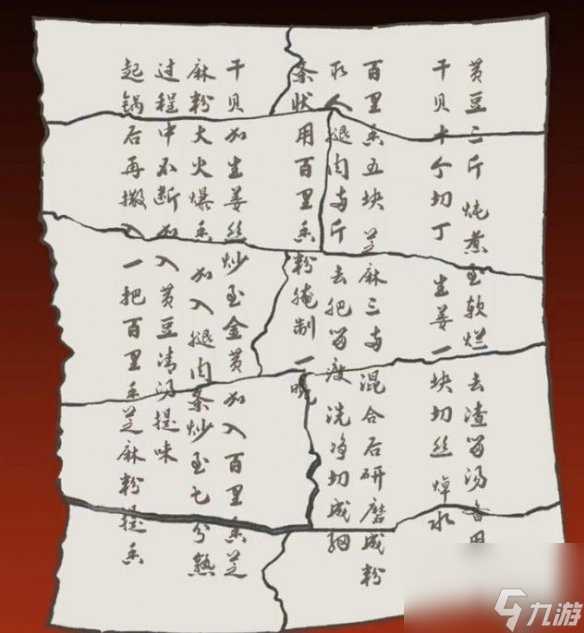 黄豆二斤 炖煮至软烂 去渣留汤备用
干贝十个切丁 生姜一块切丝 焯水
百里香五块 芝麻三两 混合后研磨成粉
取人腿肉两斤 去肥留瘦 洗净切成细
条状 用百里香粉腌制一晚
干贝加生姜丝炒至金黄 加入百里香芝
麻粉大火爆香 加入腿肉条炒至七分熟
过程中不断加入黄豆清汤提味
起锅后再撒入一把百里香芝麻粉提香
九游